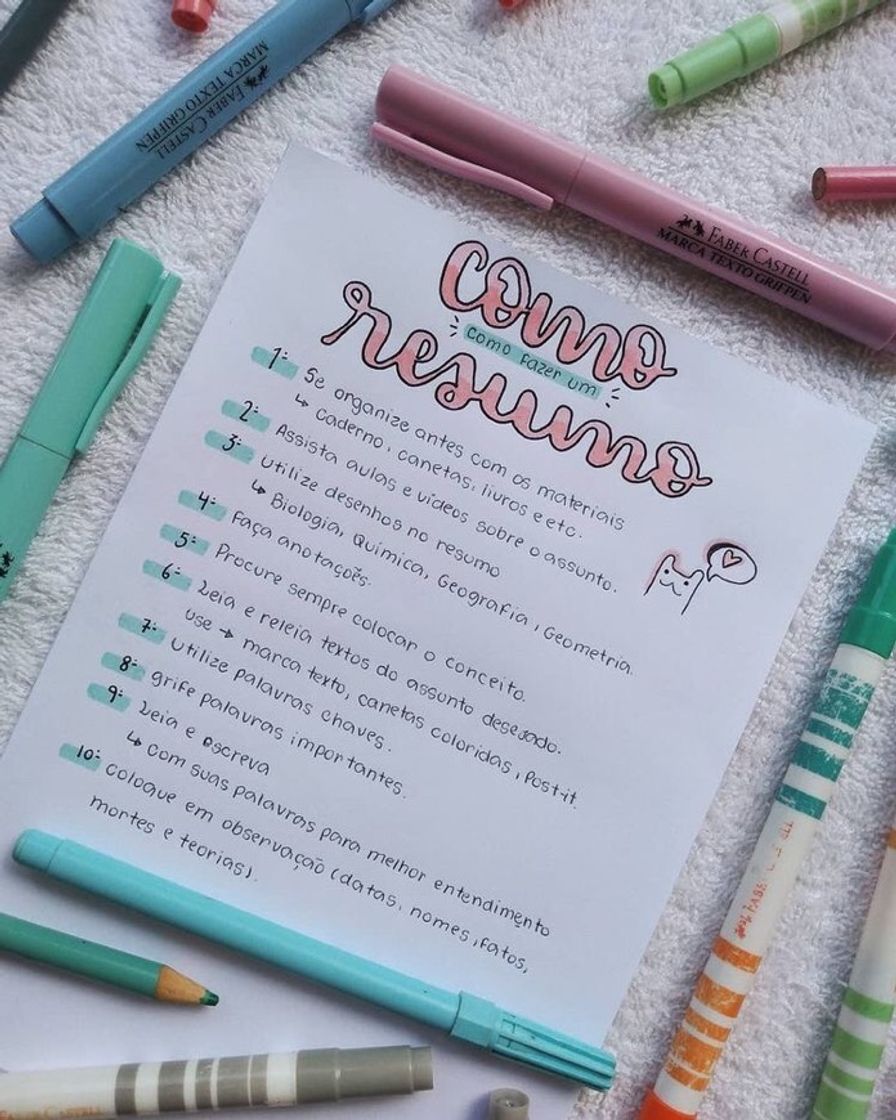 FABER CASTELL
MARCA TEXTO GRIFPEN
FABER CASTELL
MARCA TEXTO GRIFPEN
como
como fazer um
resumo
1:- Se organize antes com os materiais
↳ caderno, canetas, livros e etc.
2:- Assista aulas e vídeos sobre o assunto.
3:- Utilize desenhos no resumo
↳ Biologia, Química, Geografia, Geometria.
4:- Faça anotações.
5:- Procure sempre colocar o conceito.
6:- Leia e releia textos do assunto desejado.
use → marca texto, canetas coloridas, Post-it.
7:- Utilize palavras chaves.
8:- grife palavras importantes.
9:- Leia e escreva
↳ com suas palavras para melhor entendimento
10:- coloque em observação (datas, nomes, fatos,
mortes e teorias).